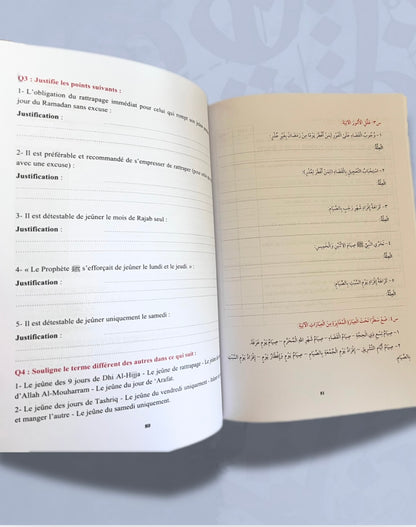 Q3 : Justifie les points suivants :
1- L'obligation du rattrapage immédiat pour celui qui rompt son jeûne
jour du Ramadan sans excuse :
Justification :
2- Il est préférable et recommandé de s'empresser de rattraper (pour celui
avec une excuse) :
Justification :
3- Il est détestable de jeûner le mois de Rajab seul :
Justification :
4- « Le Prophète ﷺ s'efforçait de jeûner le lundi et le jeudi. » :
Justification :
5- Il est détestable de jeûner uniquement le samedi :
Justification :
Q4 : Souligne le terme différent des autres dans ce qui suit :
1- Le jeûne des 9 jours de Dhi Al-Hijja - Le jeûne de rattrapage - Le
d'Allah Al-Mouharram - Le jeûne du jour de 'Arafat.
2- Le jeûne des jours de Tashriq - Le jeûne du vendredi uniquement -
et manger l'autre - Le jeûne du samedi uniquement.
80
س٣- علّل الأمور الآتية:
١- وجوب القضاء على الفور لمن أفطر يومًا من رمضان بغير عذر.
العلة:
٢- استحباب التعجيل بالقضاء لمن أفطر لعذر.
العلة:
٣- كراهة إفراد شهر رجب بالصيام.
العلة:
٤- تحري النبي ﷺ صيام الاثنين والخميس.
العلة:
٥- كراهة إفراد يوم السبت بالصيام.
العلة:
١- صيام تسع ذي الحجة - صيام القضاء - صيام شهر الله المحرم - صيام يوم عرفة.
٢- صيام أيام التشريق - إفراد يوم الجمعة بالصيام - صيام يوم وإفطار يوم - إفراد يوم السبت
بالصيام.
81